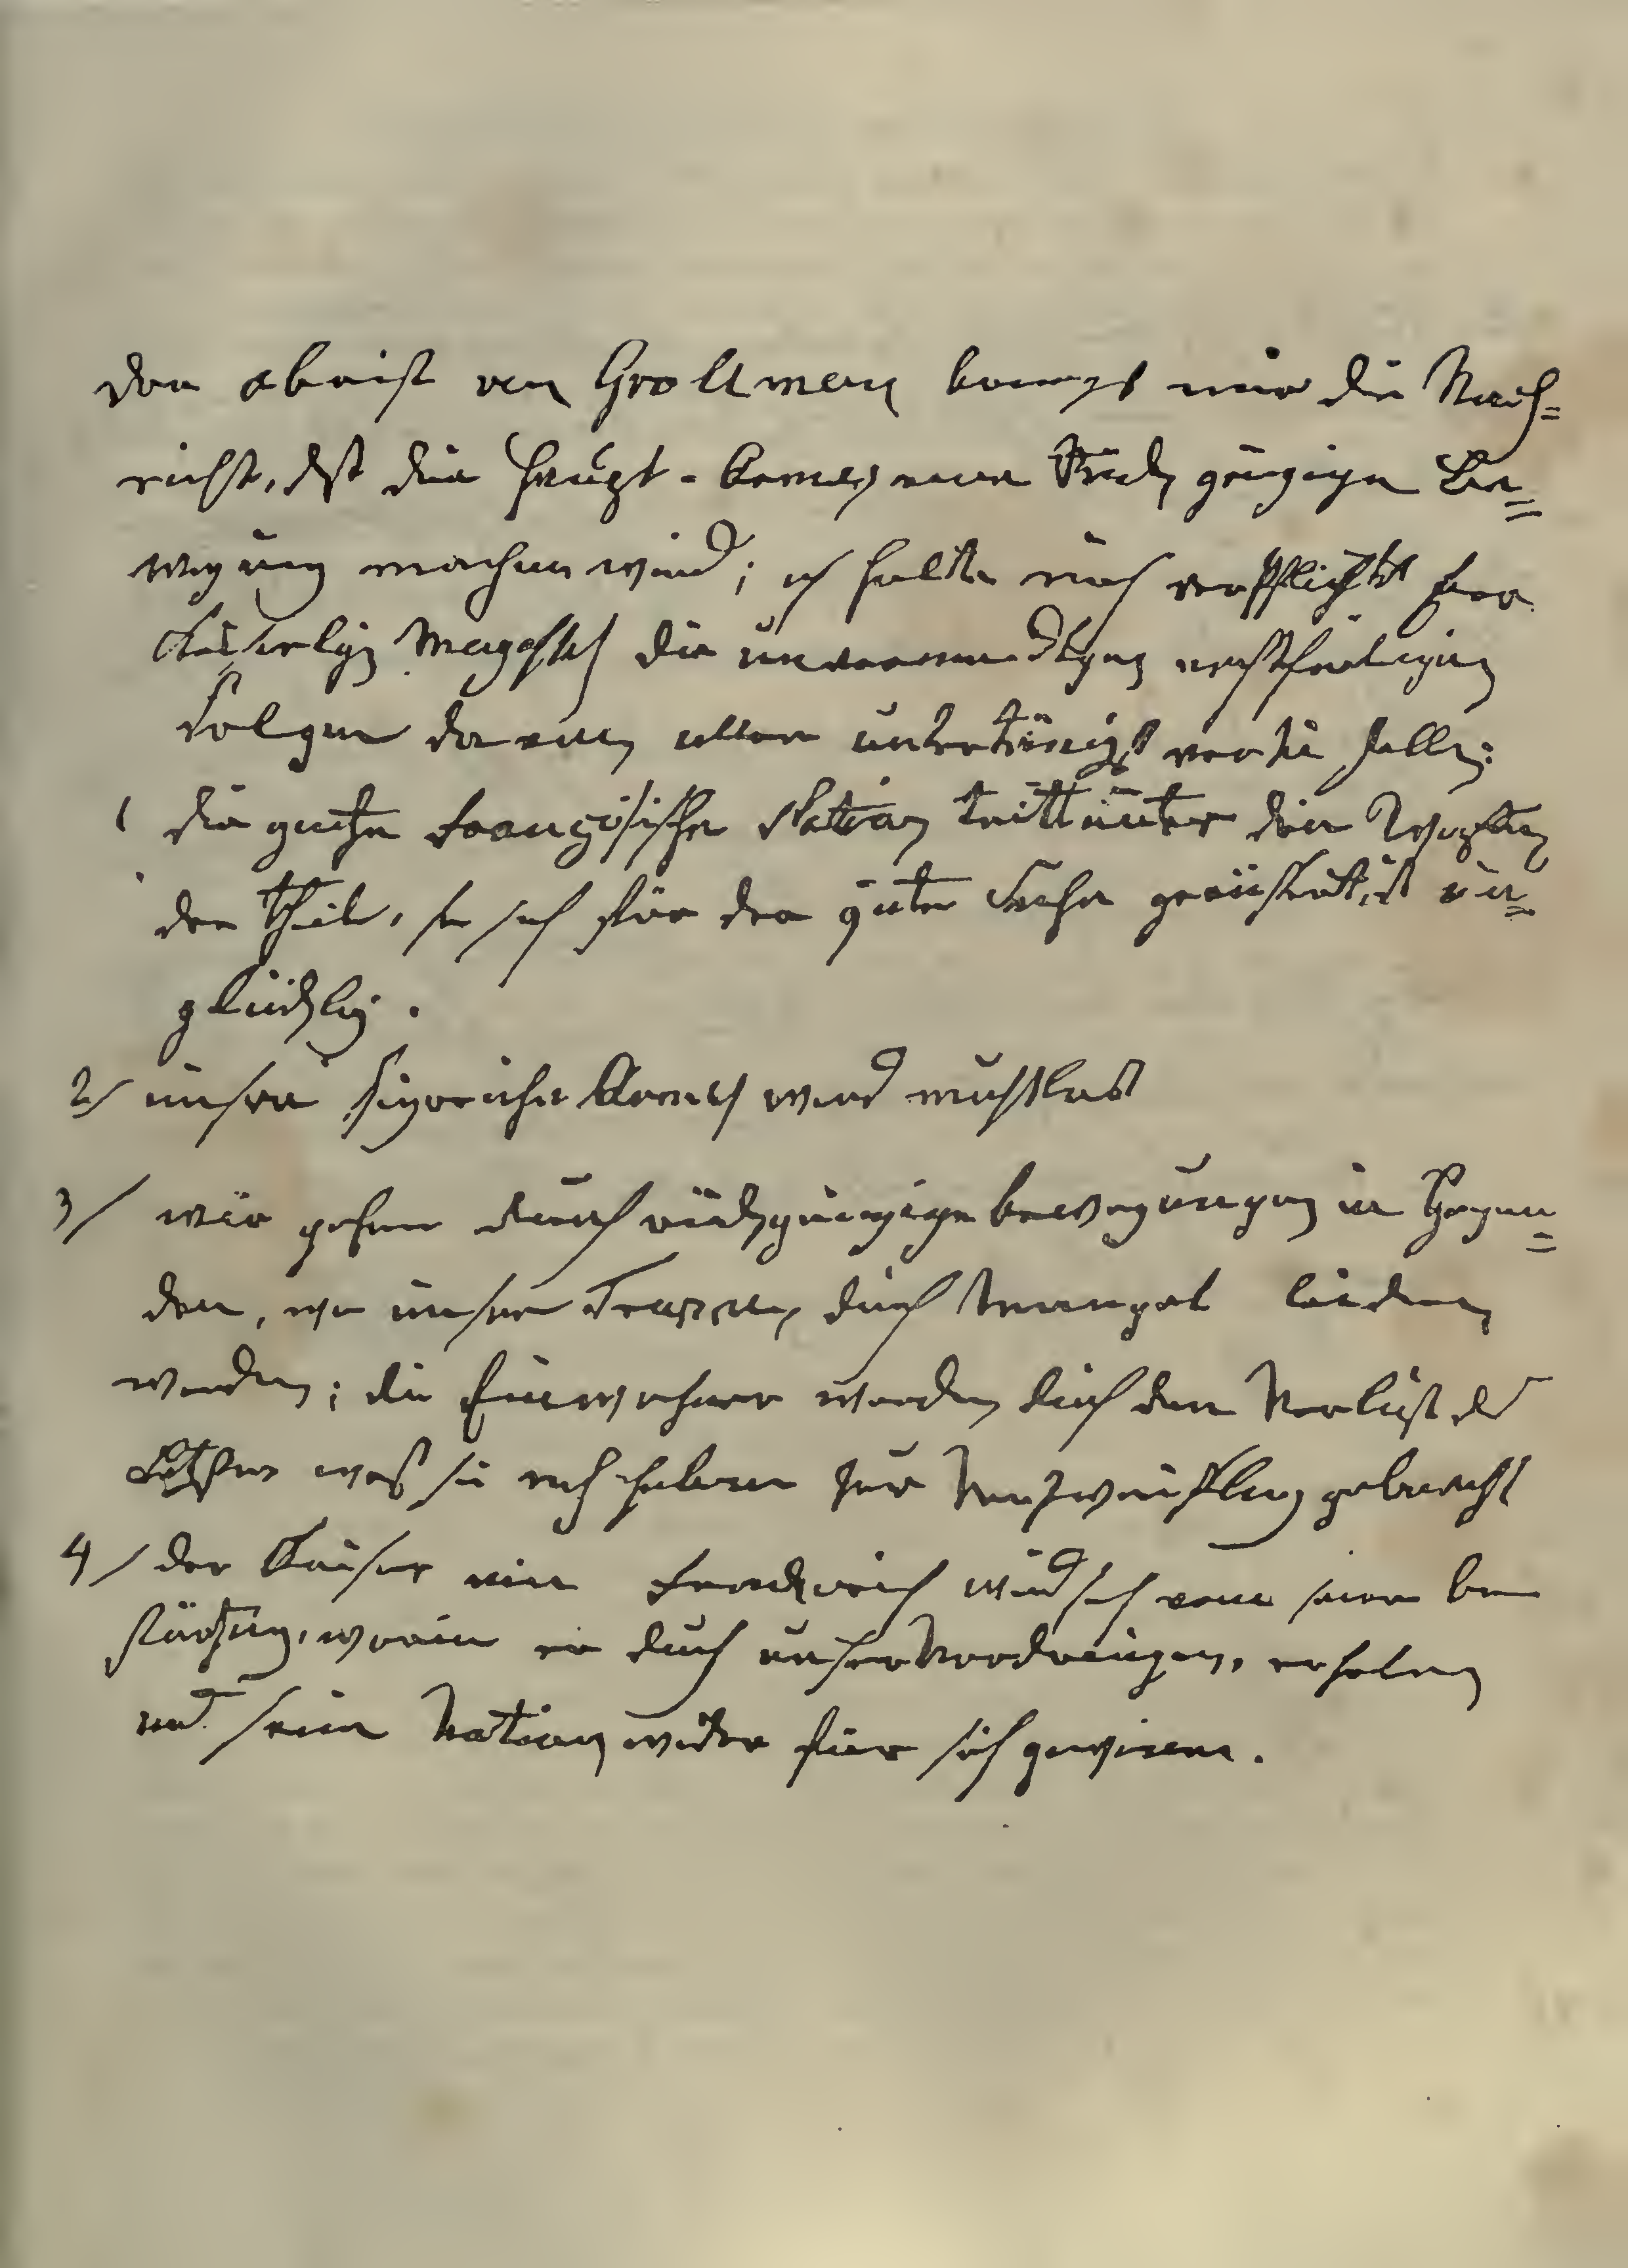 der obrist von Grollman bringt mir die Nach=
richt, dß die Haupt-Armeh eine Rück gängige Be=
wegung machen wird; ich halte mich verpflicht Euer
Kaiserlige Mayesteh die unvermeidligen nachtheiligen
Folgen da von aller untertänigst vor zu stellen:
1 die gantze Französische Nation tritt unter die Waffen
der Theil, so sich für der guten Sache geäusert, ist un=
glücklig.
2/ unsere siegreiche Armeh wird muthlos
3/ wir gehen durch rückgängige bewegungen in Gegen=
den, wo unsere Truppen durch Mangel leiden
werden; die Einwohner werden durch den Verlust des
letzten was sie noch haben zur Verzweiflung gebracht
4/ der Kaiser von Frankreich wird sich von seiner be
stürtzung, worin er durch unser Vordringen, erholen
und seine Nation wider für sich gewinnen.